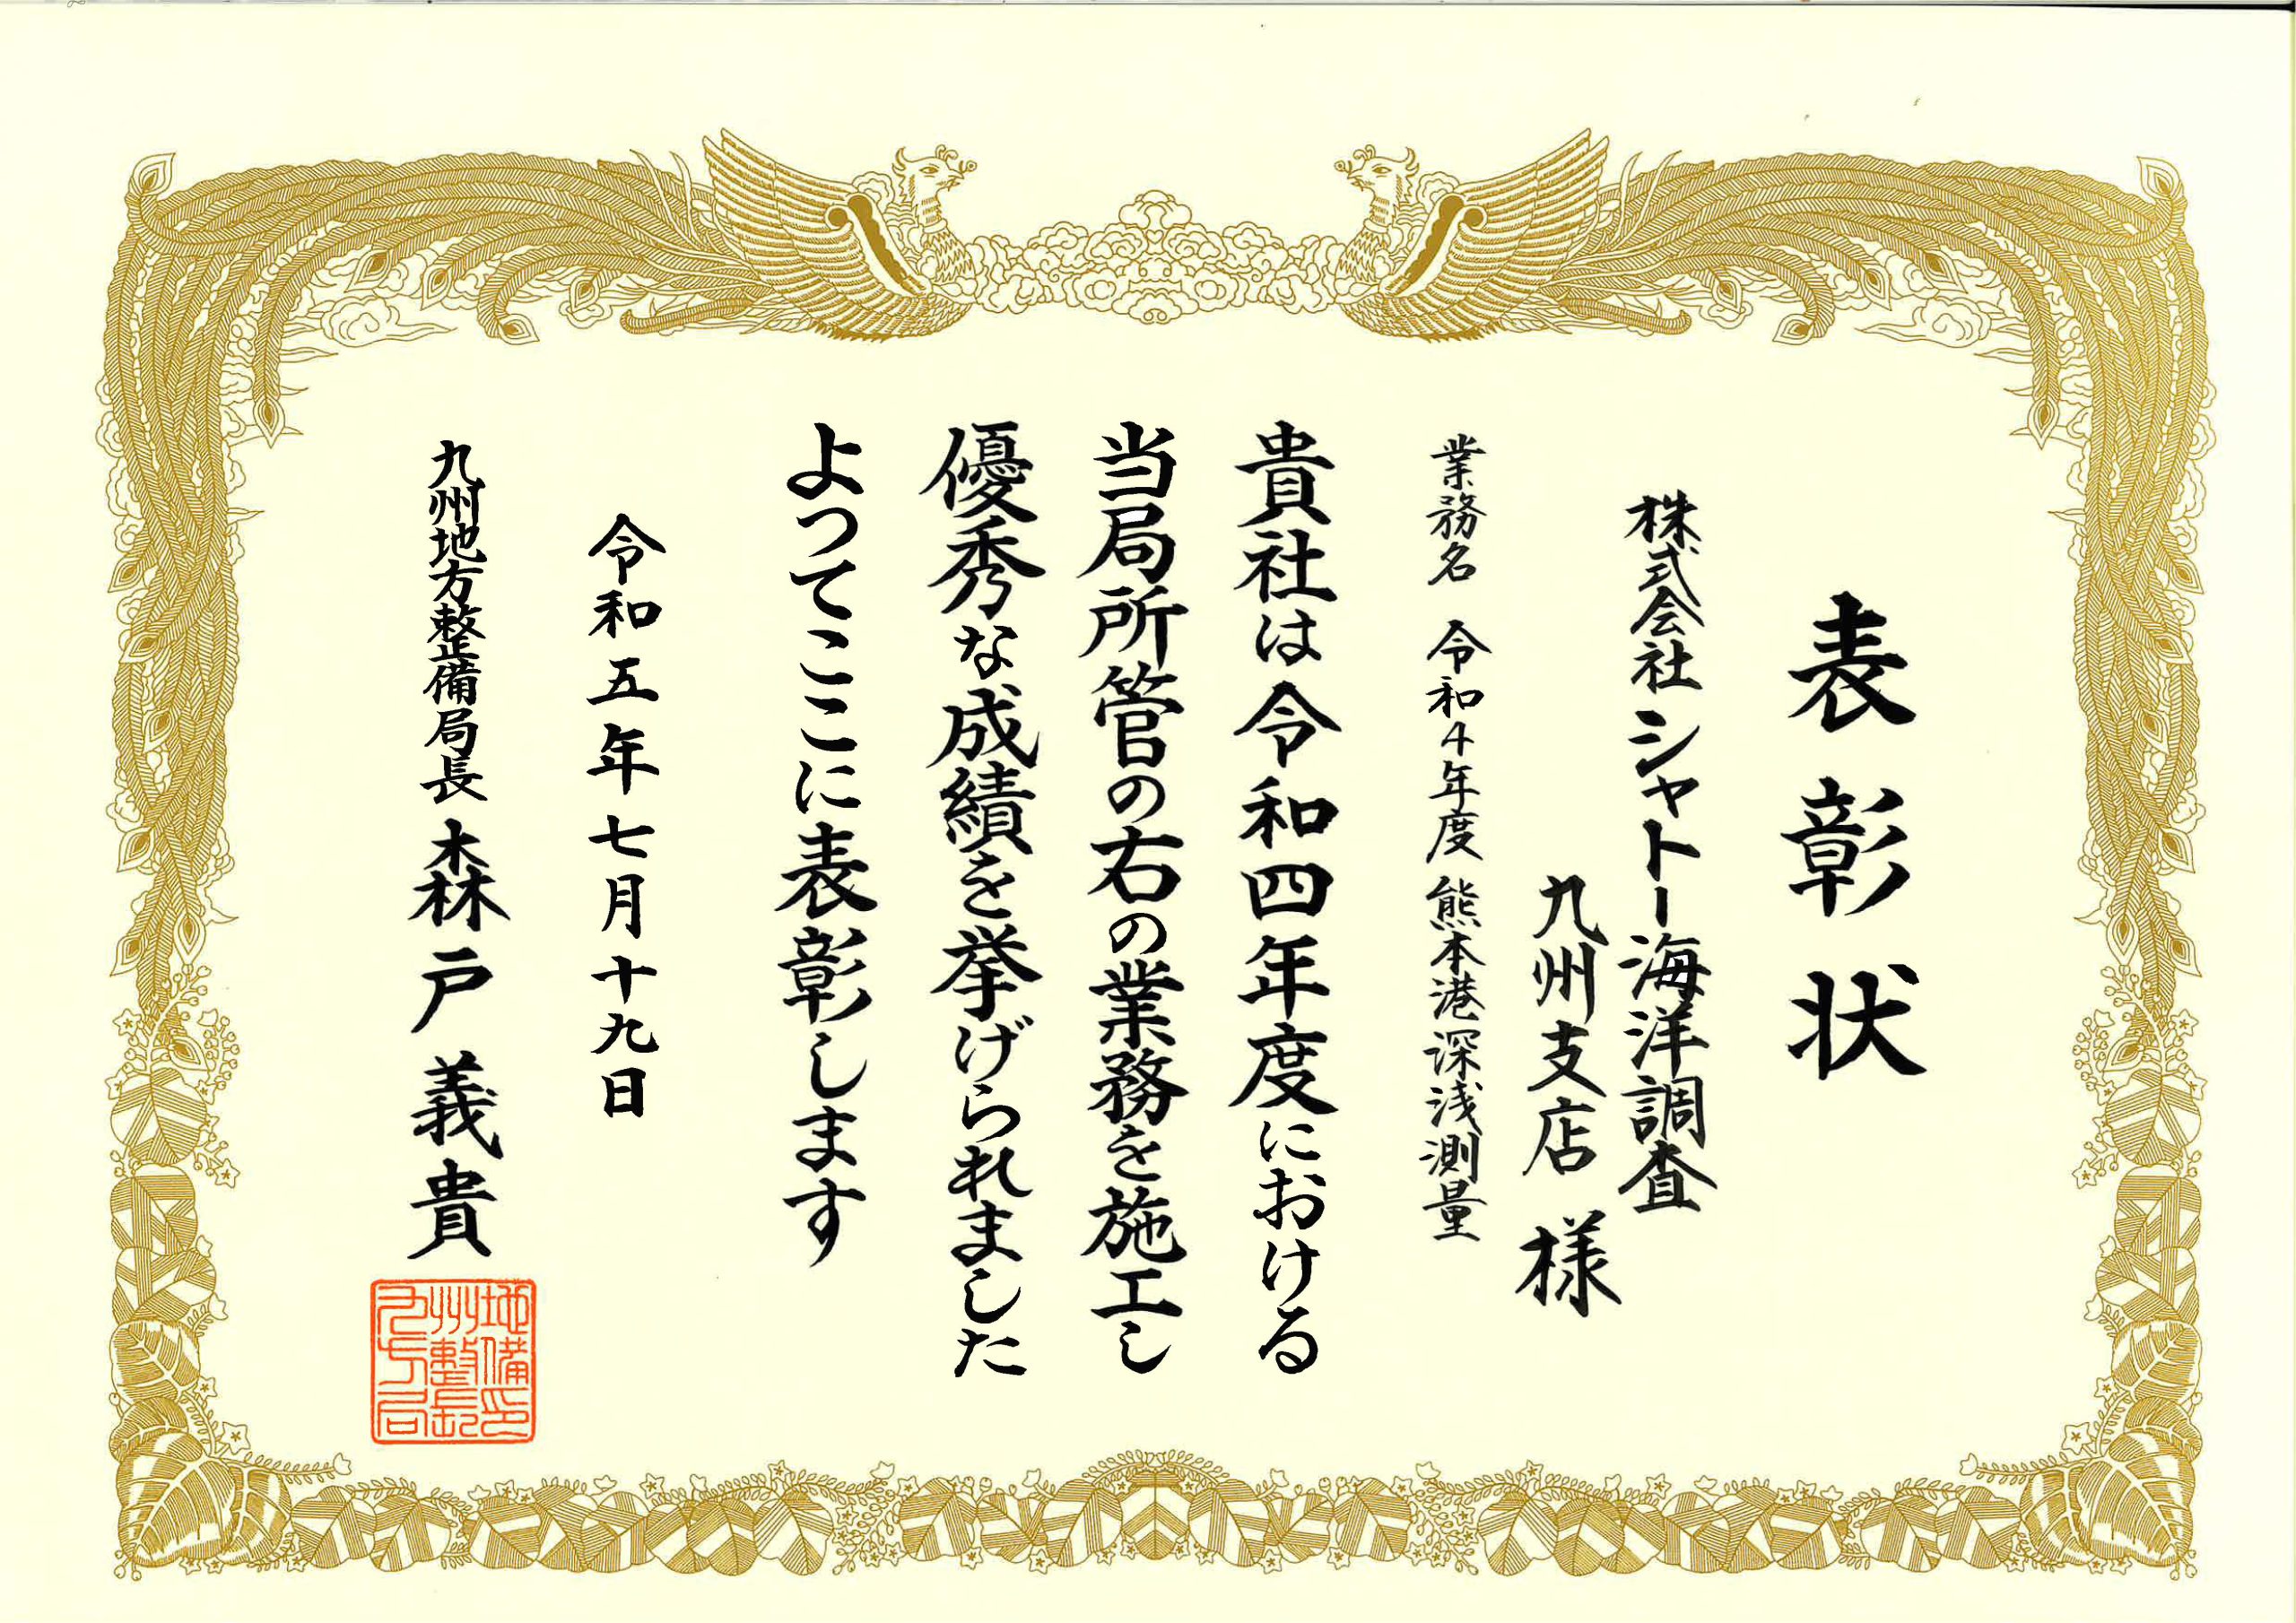 表彰状
株式会社シャトー海洋調査
九州支店 様
業務名 令和4年度 熊本港深浅測量
貴社は令和四年度における
当局所管の右の業務を施工し
優秀な成績を挙げられました
よつてここに表彰します
令和五年七月十九日
九州地方整備局長 森戸義貴
九州地方整備局長印